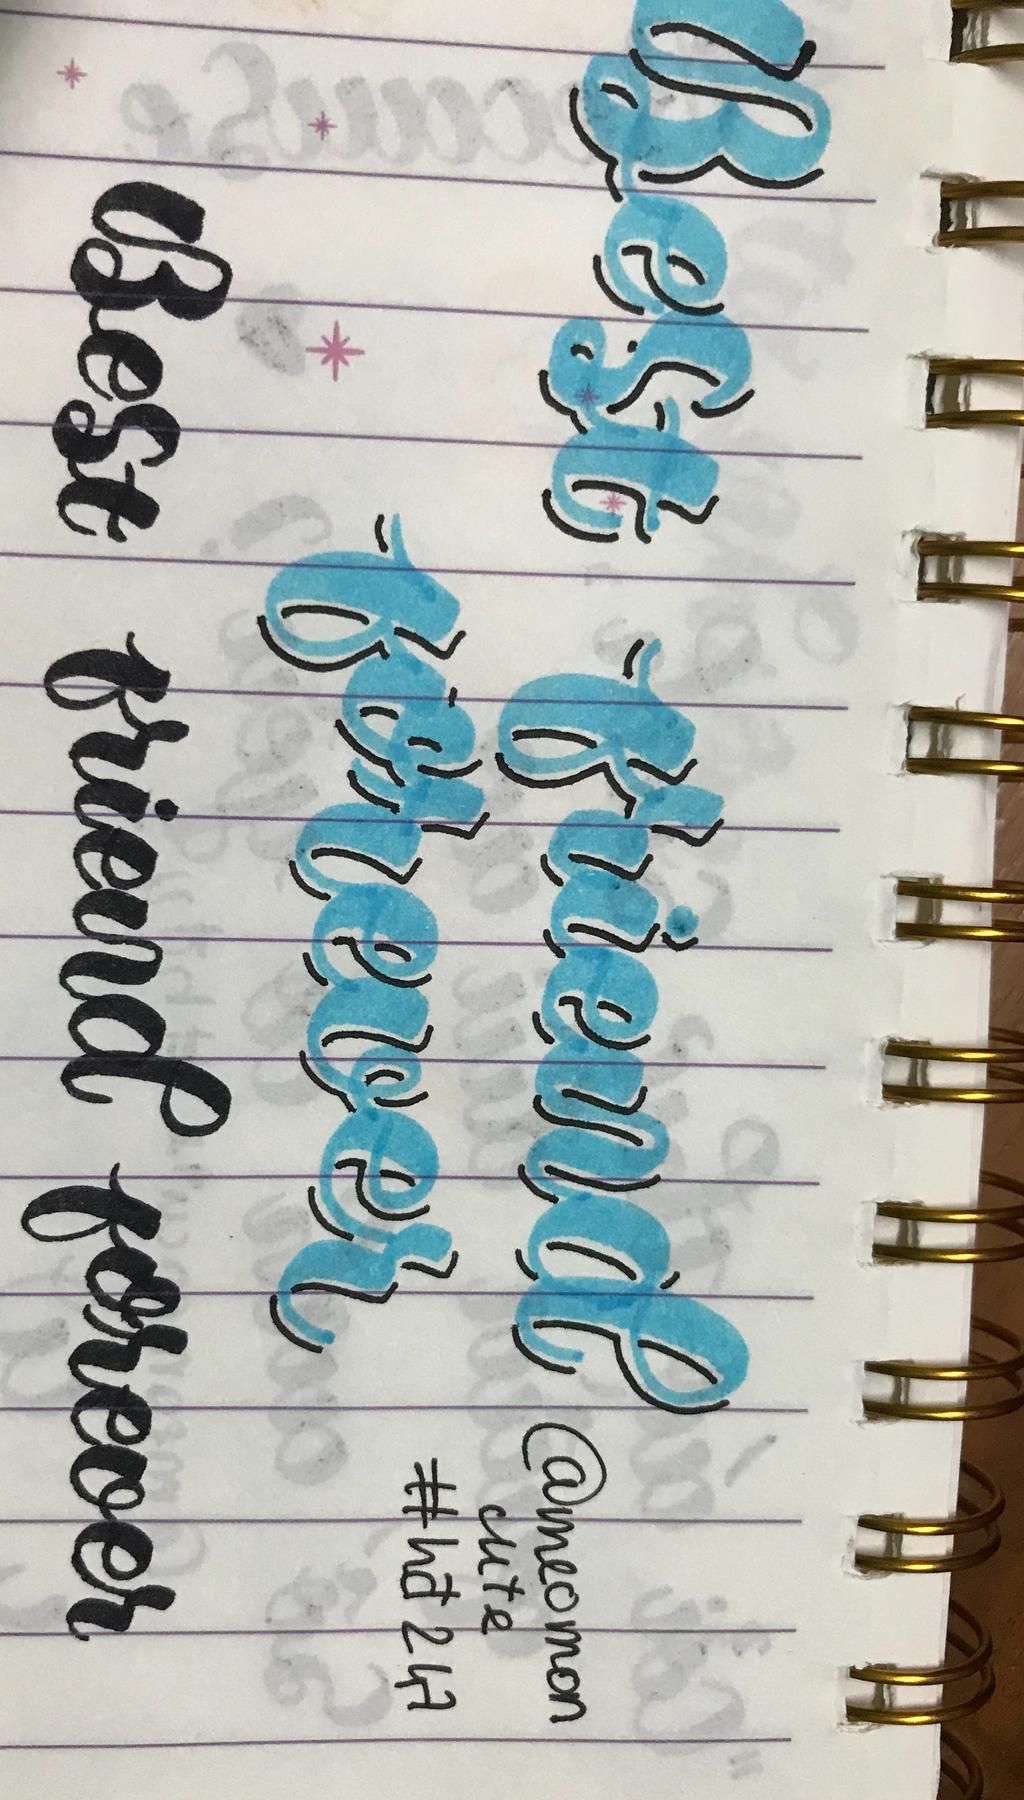 Best
friend
forever
@meomon
cute
#hd247
Best friend forever